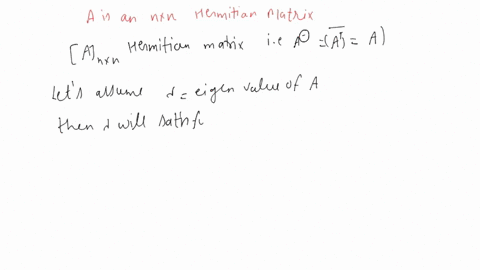 A is an nxn Hermitian Matrix
[A]nxn Hermitian matrix i.e A^Θ = (A̅ᵀ) = A)
Let's assume λ = eigen value of A
then λ will satisf